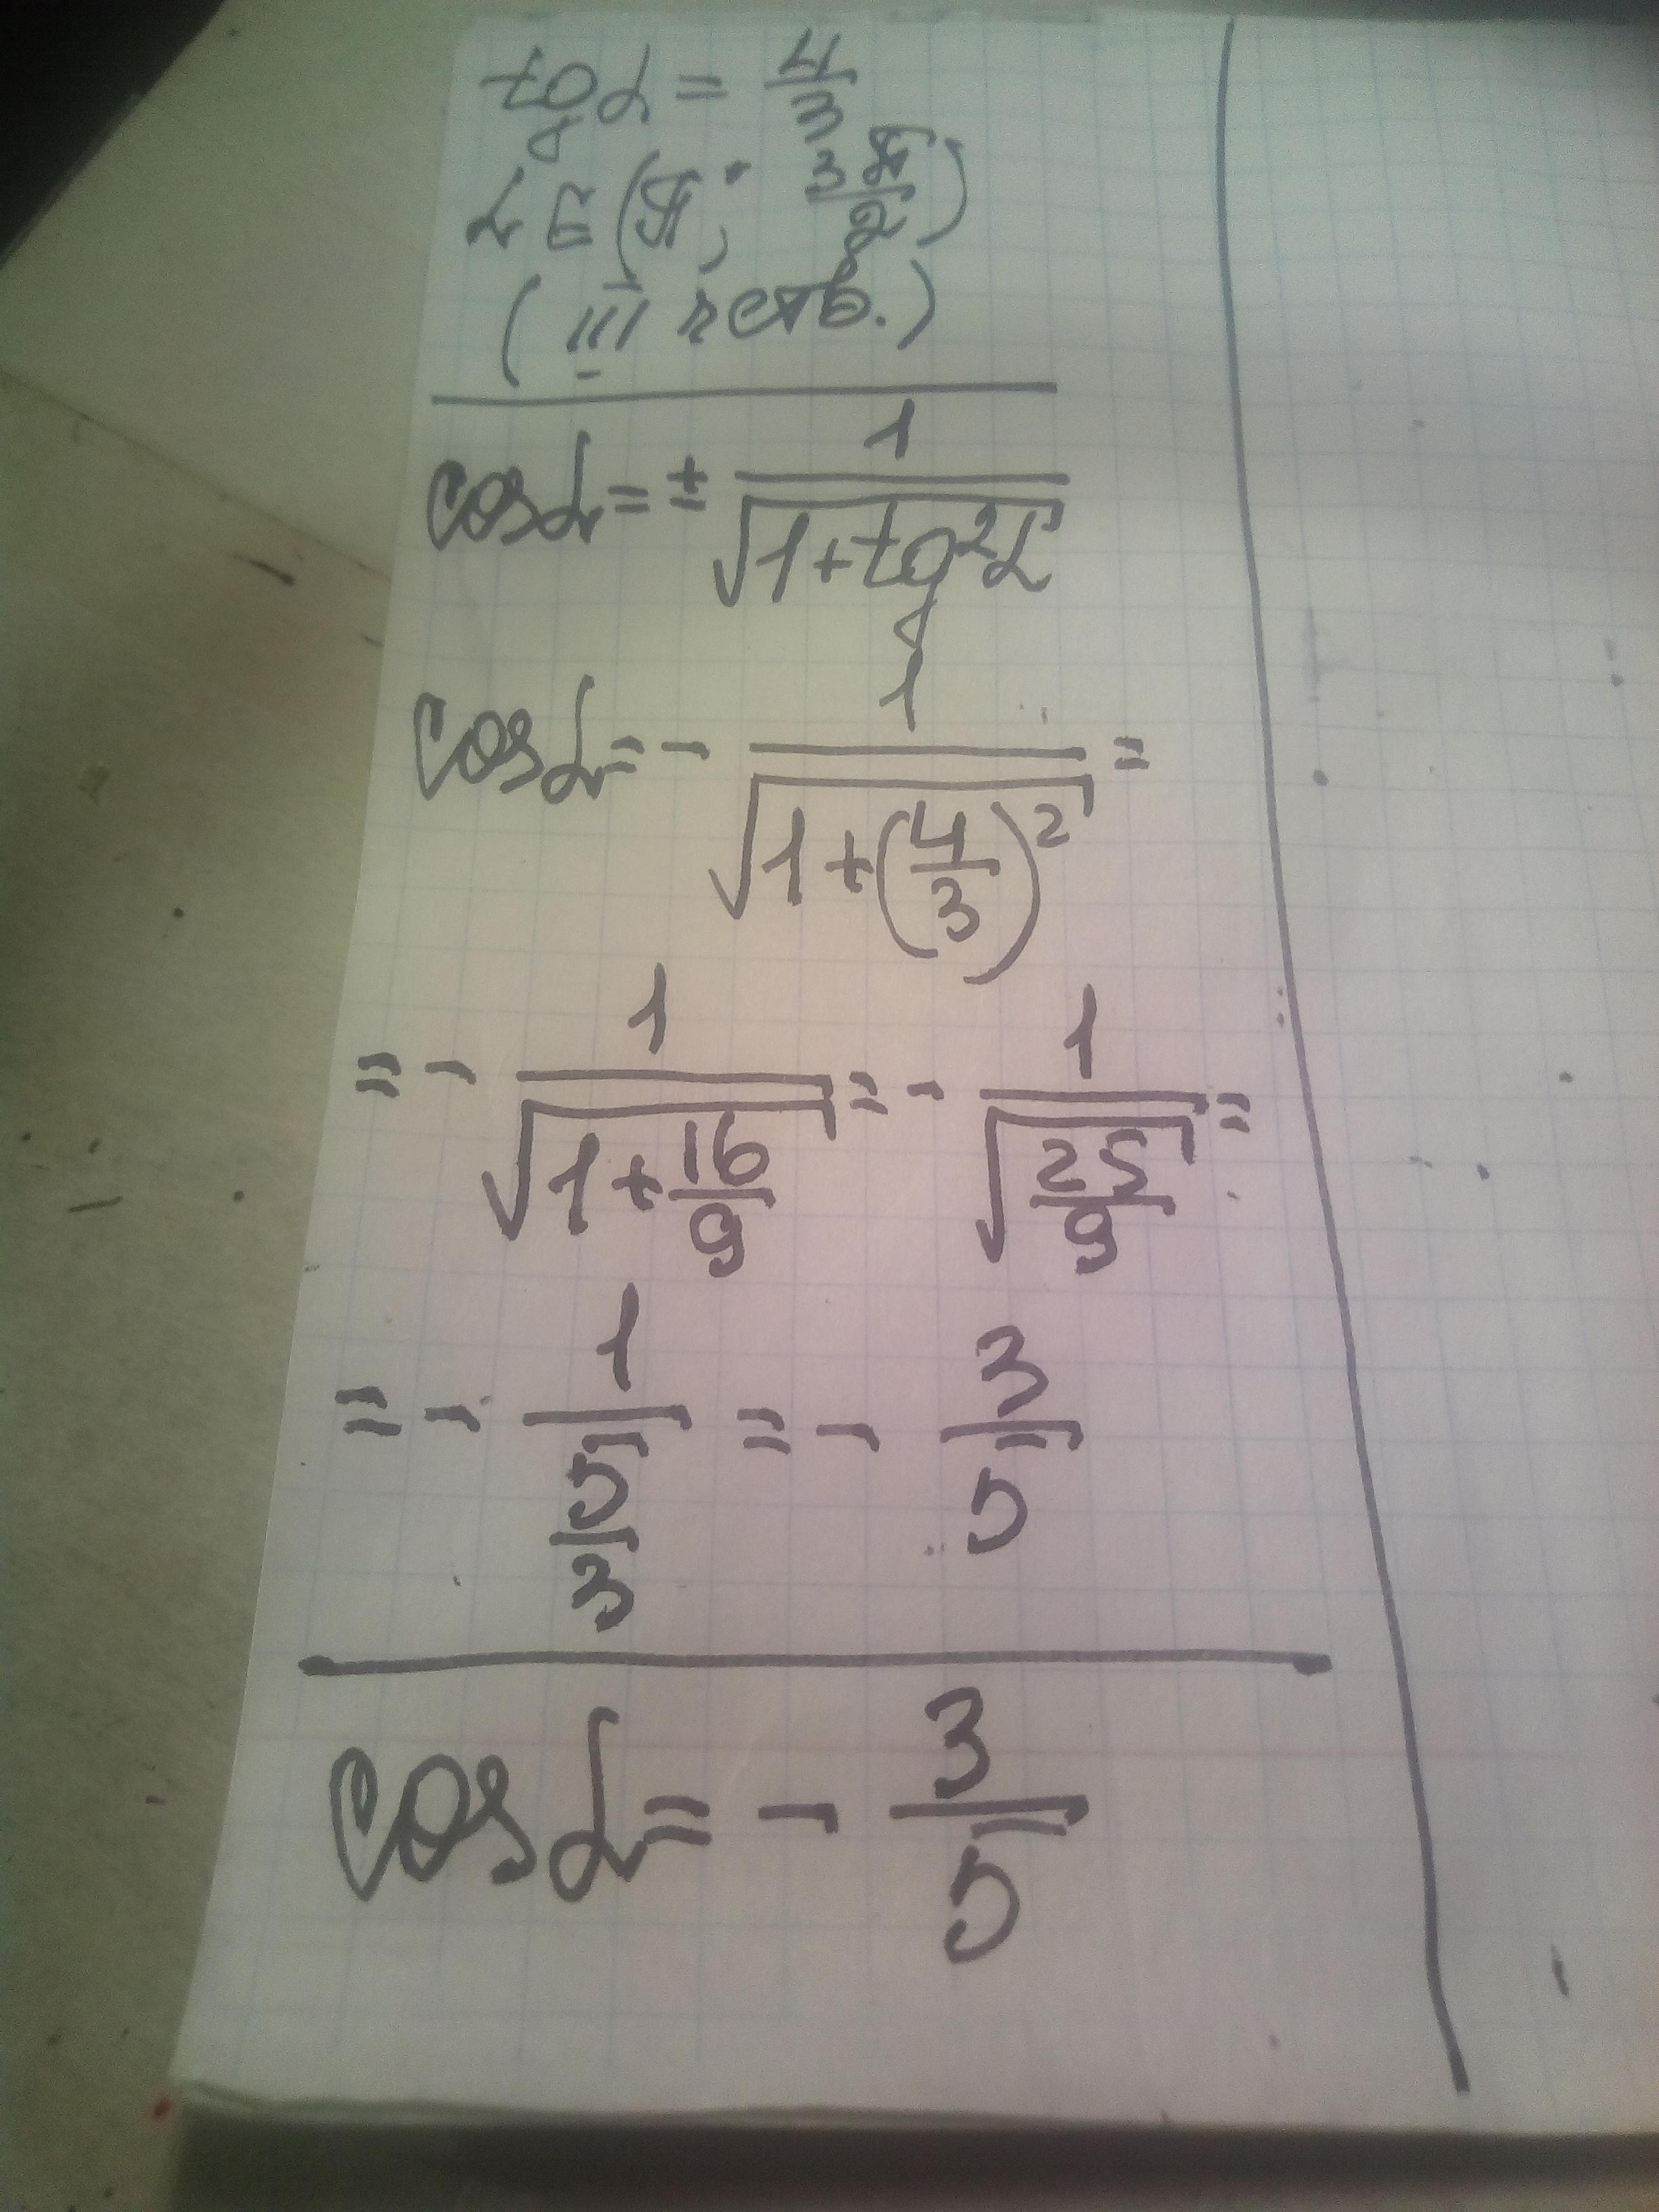 tgα = 4/3
α ∈ (π; 3π/2)
(III четв.)
cosα = ± 1/√(1+tg²α)
cosα = - 1/√(1+(4/3)²) =
= - 1/√(1+16/9) = - 1/√(25/9) =
= - 1/(5/3) = - 3/5
cosα = - 3/5